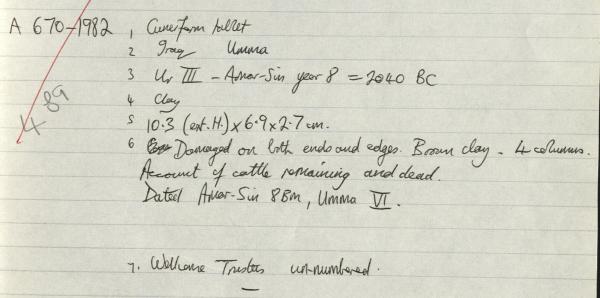 A 670-1982, Cuneiform tablet
2 Iraq Umma
3 Ur III - Amar-Sin year 8 = 2040 BC
4 Clay
5 10.3 (ext. H.) x 6.9 x 2.7 cm.
6 Damaged on both ends and edges. Brown clay - 4 columns.
Account of cattle remaining and dead.
Dated Amar-Sin 8 , Umma VI.
7. Wellcome Trustees unnumbered.
4 89